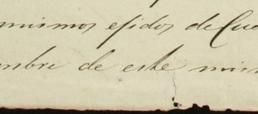 mismos ejidos de Cu
mbre de este mis